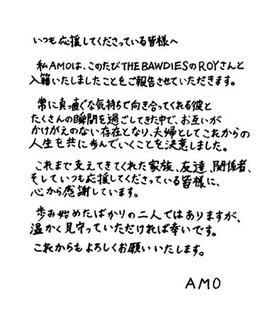 いつも応援してくださっている皆様へ
私AMOは、このたびTHE BAWDIESのROYさんと
入籍いたしましたことをご報告させていただきます。
常に真っ直ぐな気持ちで向き合ってくれる彼と
たくさんの瞬間を過ごしてきた中で、お互いが
かけがえのない存在となり、夫婦としてこれからの
人生を共に歩んでいくことを決意しました。
これまで支えてきてくれた家族、友達、関係者、
そしていつも応援してくださっている皆様に、
心から感謝しています。
歩み始めたばかりの二人ではありますが、
温かく見守っていただければ幸いです。
これからもよろしくお願いいたします。
AMO